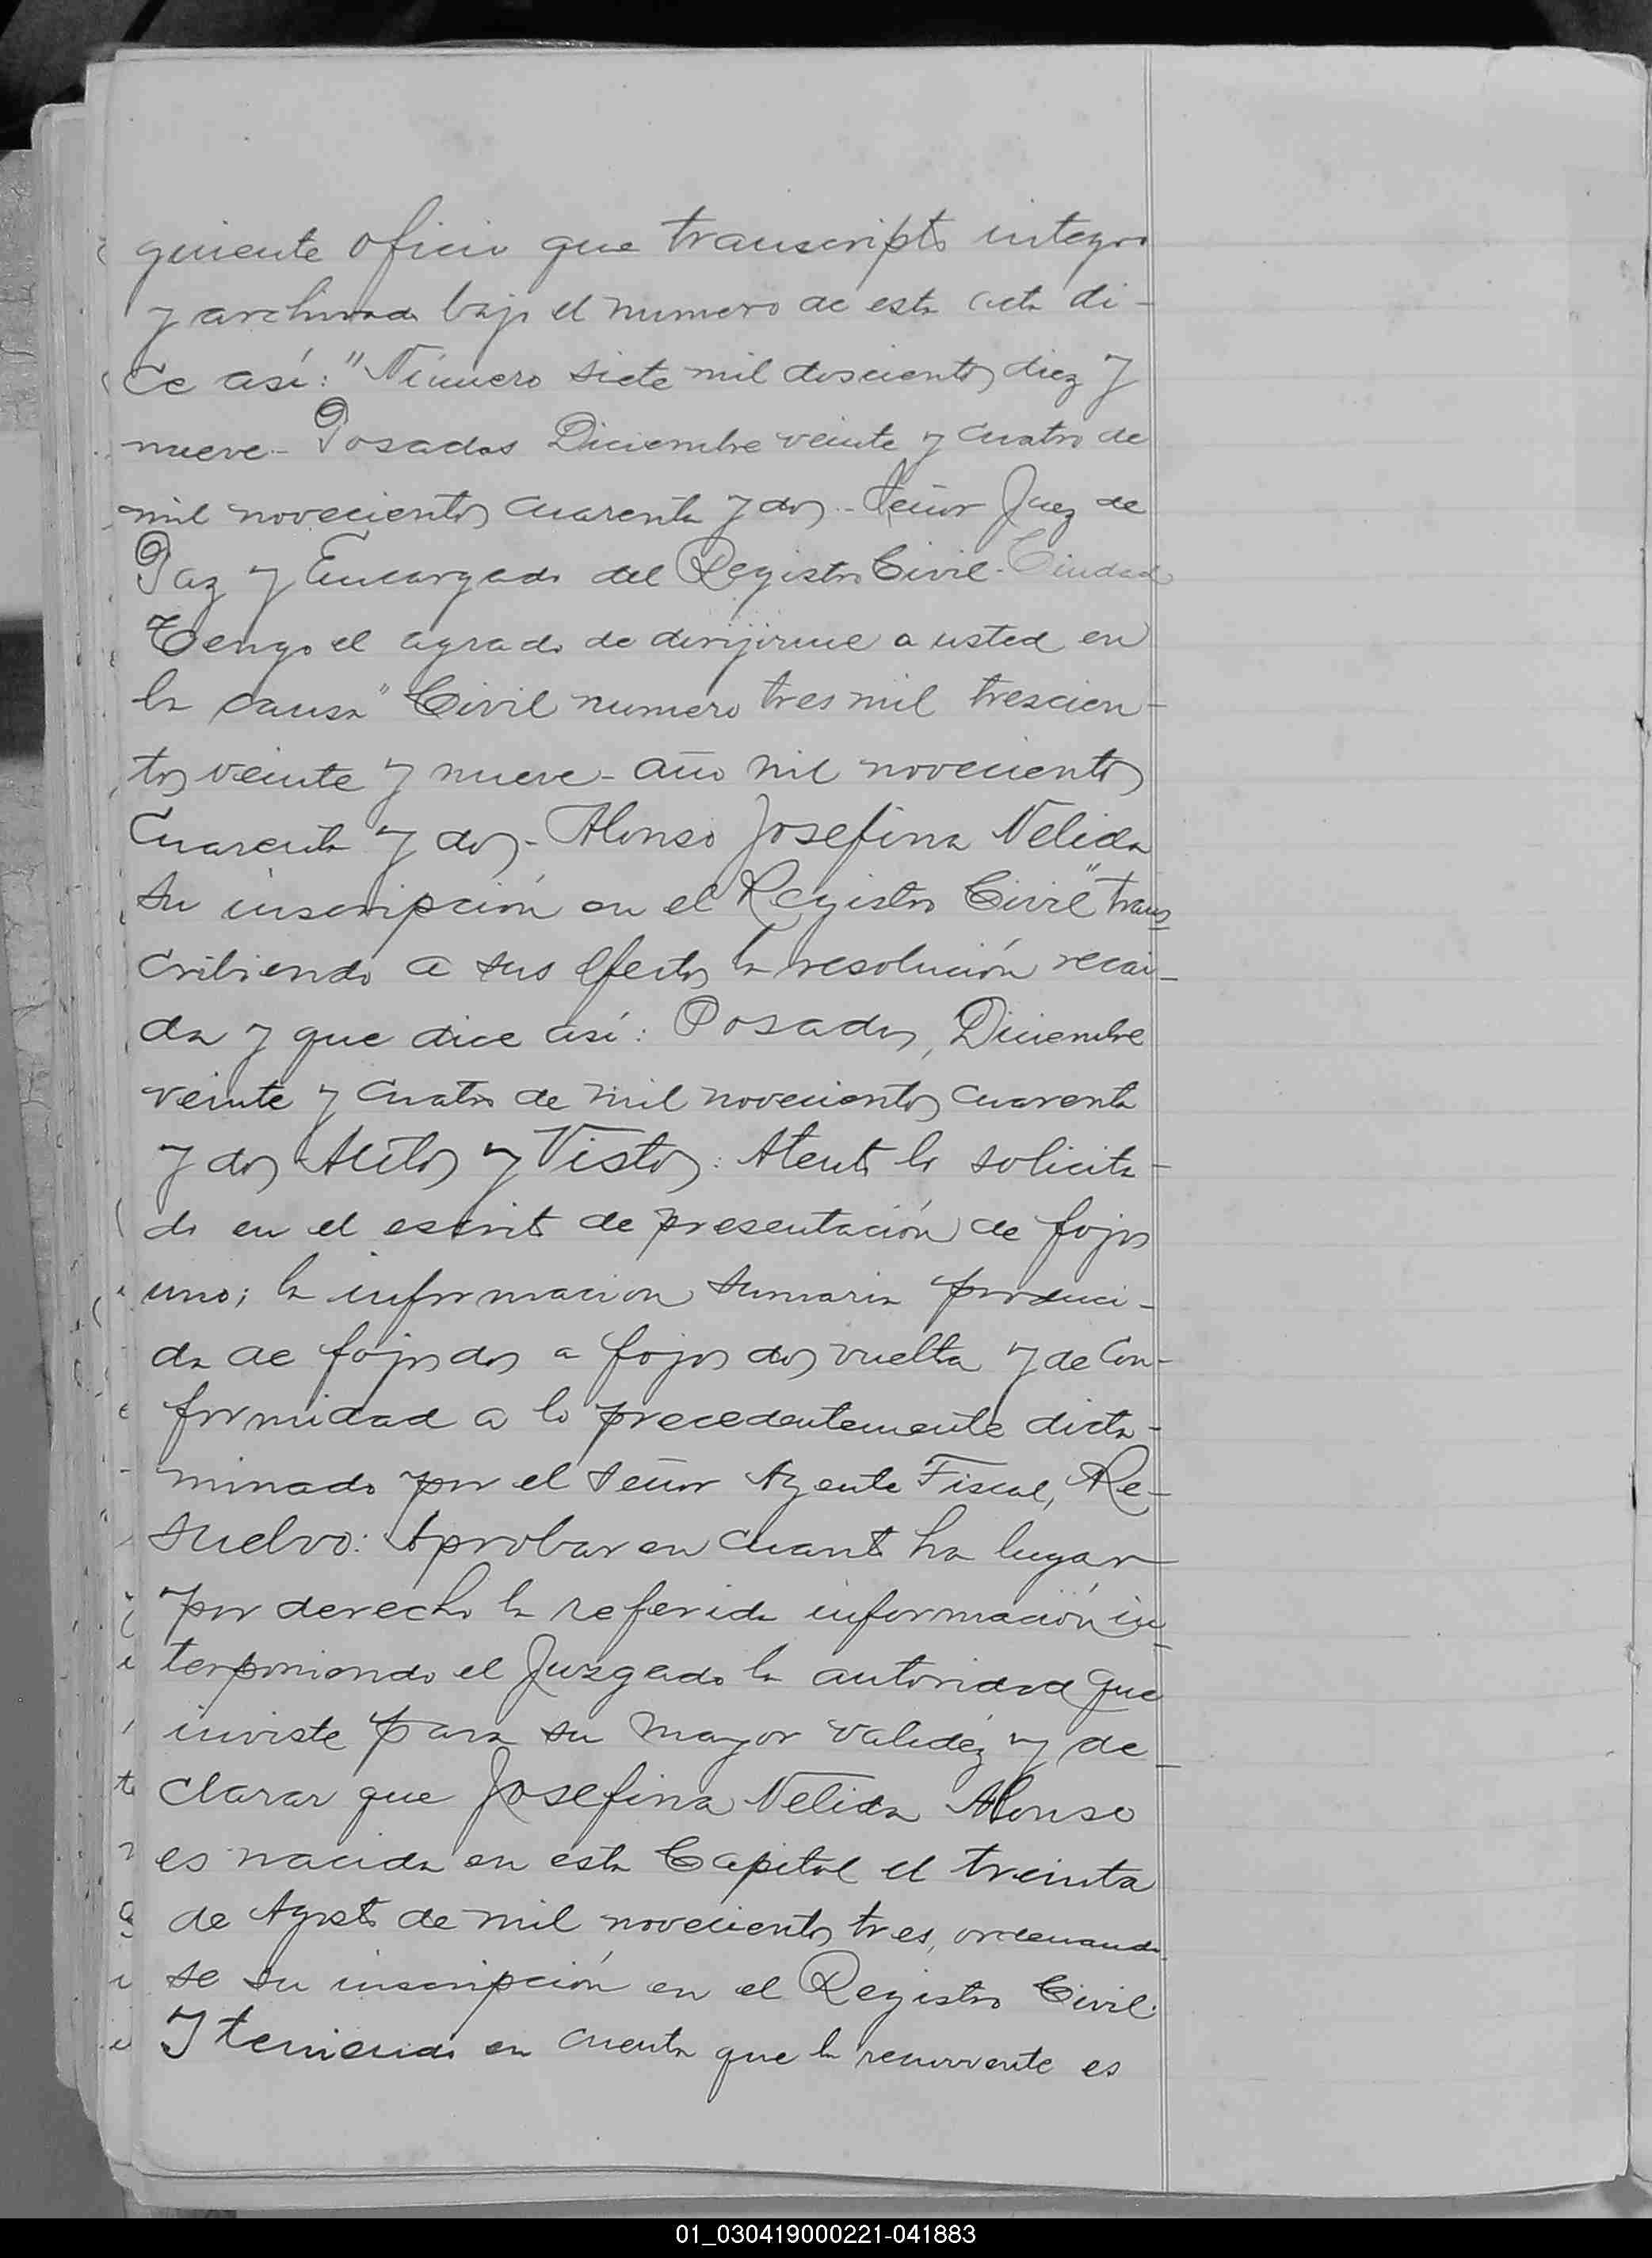 guiente oficio que transcripto integro
y archivado bajo el numero de esta acta di-
ce así: "Número siete mil doscientos diez y
nueve - Posadas Diciembre veinte y cuatro de
mil novecientos cuarenta y dos - Señor Juez de
Paz y Encargado del Registro Civil - Ciudad
Tengo el agrado de dirijirme a usted en
la causa "Civil numero tres mil trescien-
tos veinte y nueve - año mil novecientos
cuarenta y dos - Alonso Josefina Nelida
su inscripción en el Registro Civil" trans
cribiendo a sus efectos la resolución recai-
da y que dice así: Posadas, Diciembre
veinte y cuatro de mil novecientos cuarenta
y dos Autos y Vistos: Atento lo solicita-
do en el escrito de presentación de fojas
uno; la informacion sumaria produci-
da de fojas dos a fojas dos vuelta y de con-
formidad a lo precedentemente dicta-
minado por el señor Agente Fiscal, Re-
suelvo: Aprobar en cuanto ha lugar
por derecho la referida información in
terponiendo el Juzgado la autoridad que
inviste para su mayor validéz y de
clarar que Josefina Nelida Alonso
es nacida en esta Capital el treinta
de Agosto de mil novecientos tres, ordenando
se su inscripción en el Registro Civil.
Y teniendo en cuenta que la recurrente es
01_030419000221-041883